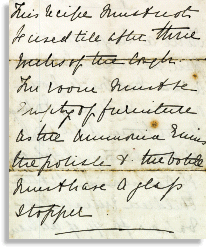 This recipe must not
be used till after three
weeks of the cough.
The room must be
Empty of furniture
as the ammonia ruins
the polish & the bottle
must have a glass
stopper